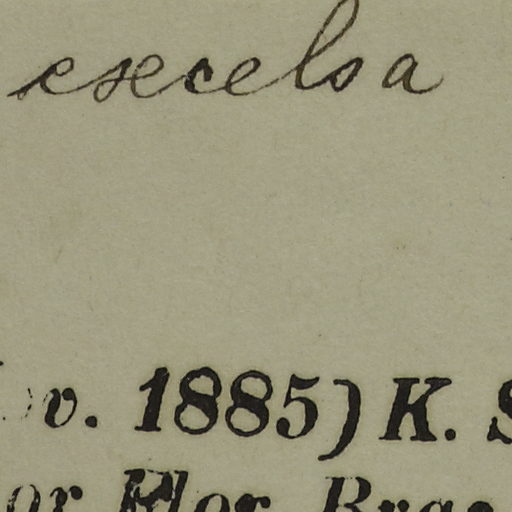 excelsa
ov. 1885) K. S
or Flor. Bras